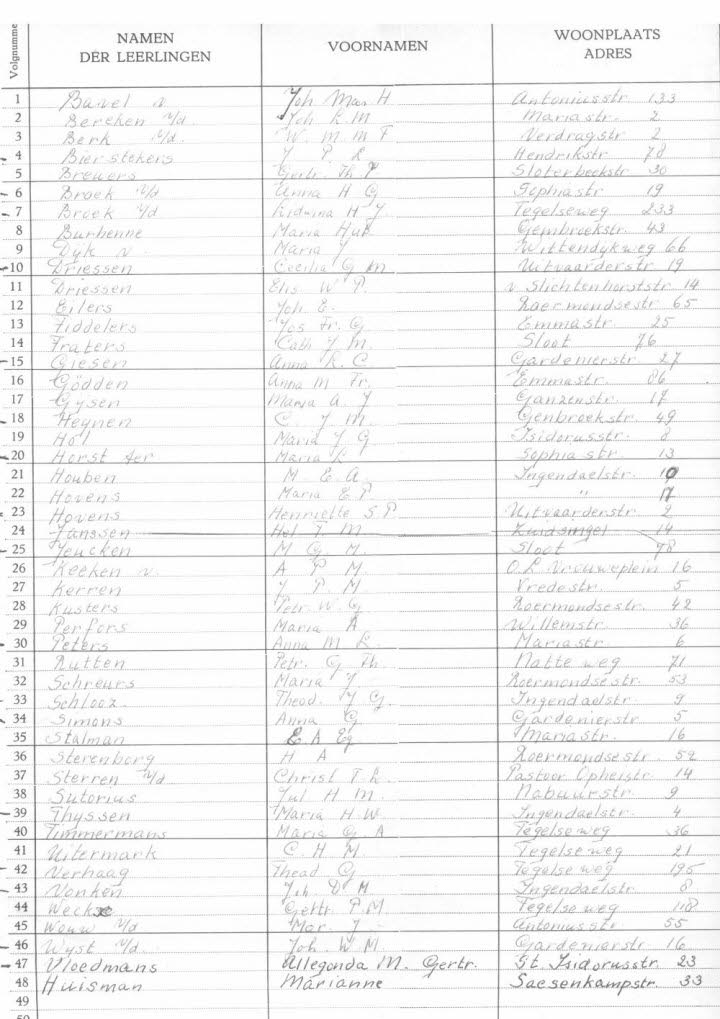 Volgnummer NAMEN DER LEERLINGEN VOORNAMEN WOONPLAATS ADRES
1 Bavel v Joh Mar H Antoniusstr 133
2 Bereken v/d. Joh K M Mariastr 2
3 Berk v/d. W. M M F Verdragstr 2
4 Bierstekers J P. L Hendrikstr 78
5 Brewers Th P Sloterbeekstr 30
6 Broek v/d Anna H G Sophiastr 19
7 Broek v/d Lidwina H J. Tegelseweg 233
8 Burhenne Maria Hub Gembroekstr. 43
9 Dyk v. Maria J Wittendykweg 66
10 Driessen Cecilia G M Uitvaarderstr 19
11 Driessen Elis W P. v Slichtenhorststr 14
12 Eilers Joh E. Roermondsestr 65
13 Fiddelers Jos Fr. G Emmastr. 25
14 Fraters Cath J M. Sloot 76
15 Giesen Anna K. C. Gardenierstr 27
16 Gödden Anna M Fr. Emmastr. 86
17 Gysen Maria A J Ganzenstr. 17
18 Heynen C. J M. Genbroekstr. 49
19 Hol Maria J G Isidorusstr. 8
20 Horst ter Maria L Sophia str. 13
21 Houben M E A. Ingendaelstr. 10
22 Hovens Maria E P. " 17
23 Hovens Henriette S P. Uitvaarderstr 2
24 Janssen Hel T. M Zuidsingel 14
25 Jeucken M G. M. Sloot 78
26 Keeken v. A P M O.L. Vrouweplein 16
27 Kerren J P. M. Vredestr. 5
28 Kusters Petr W. G Roermondsestr. 42
29 Perfors Maria A Willemstr. 36
30 Peters Anna M L. Mariastr 6
31 Rutten Petr. G Th. Natte weg 71
32 Schreurs Maria J Roermondsestr. 53
33 Schloox. Theod. J G. Ingendaelstr. 9
34 Simons Anna G Gardenierstr. 5
35 Stalman E A Eg Mariastr. 16
36 Sterenborg H A Roermondsestr. 52
37 Sterren v/d Christ F. L. Pastoor Opheistr 14
38 Sutorius Jul H M. Nabuurstr 9
39 Thyssen Maria H W. Ingendaelstr. 4
40 Timmermans Maria G. A Tegelseweg 36
41 Uitermark C. H M Tegelseweg 21
42 Verhaag Thead G Tegelseweg 195
43 Vonken Joh D M Ingendaelstr 8
44 Weckx Gertr P.M. Tegelseweg 118
45 Wouw v/d Mar. J Antoniusstr 55
46 Wyst v/d Joh. W M Gardenierstr 16.
47 Vloedmans Allegonda M. Gertr. St. Isidorusstr. 23
48 Huisman Marianne Saesenkampstr. 33
49
50